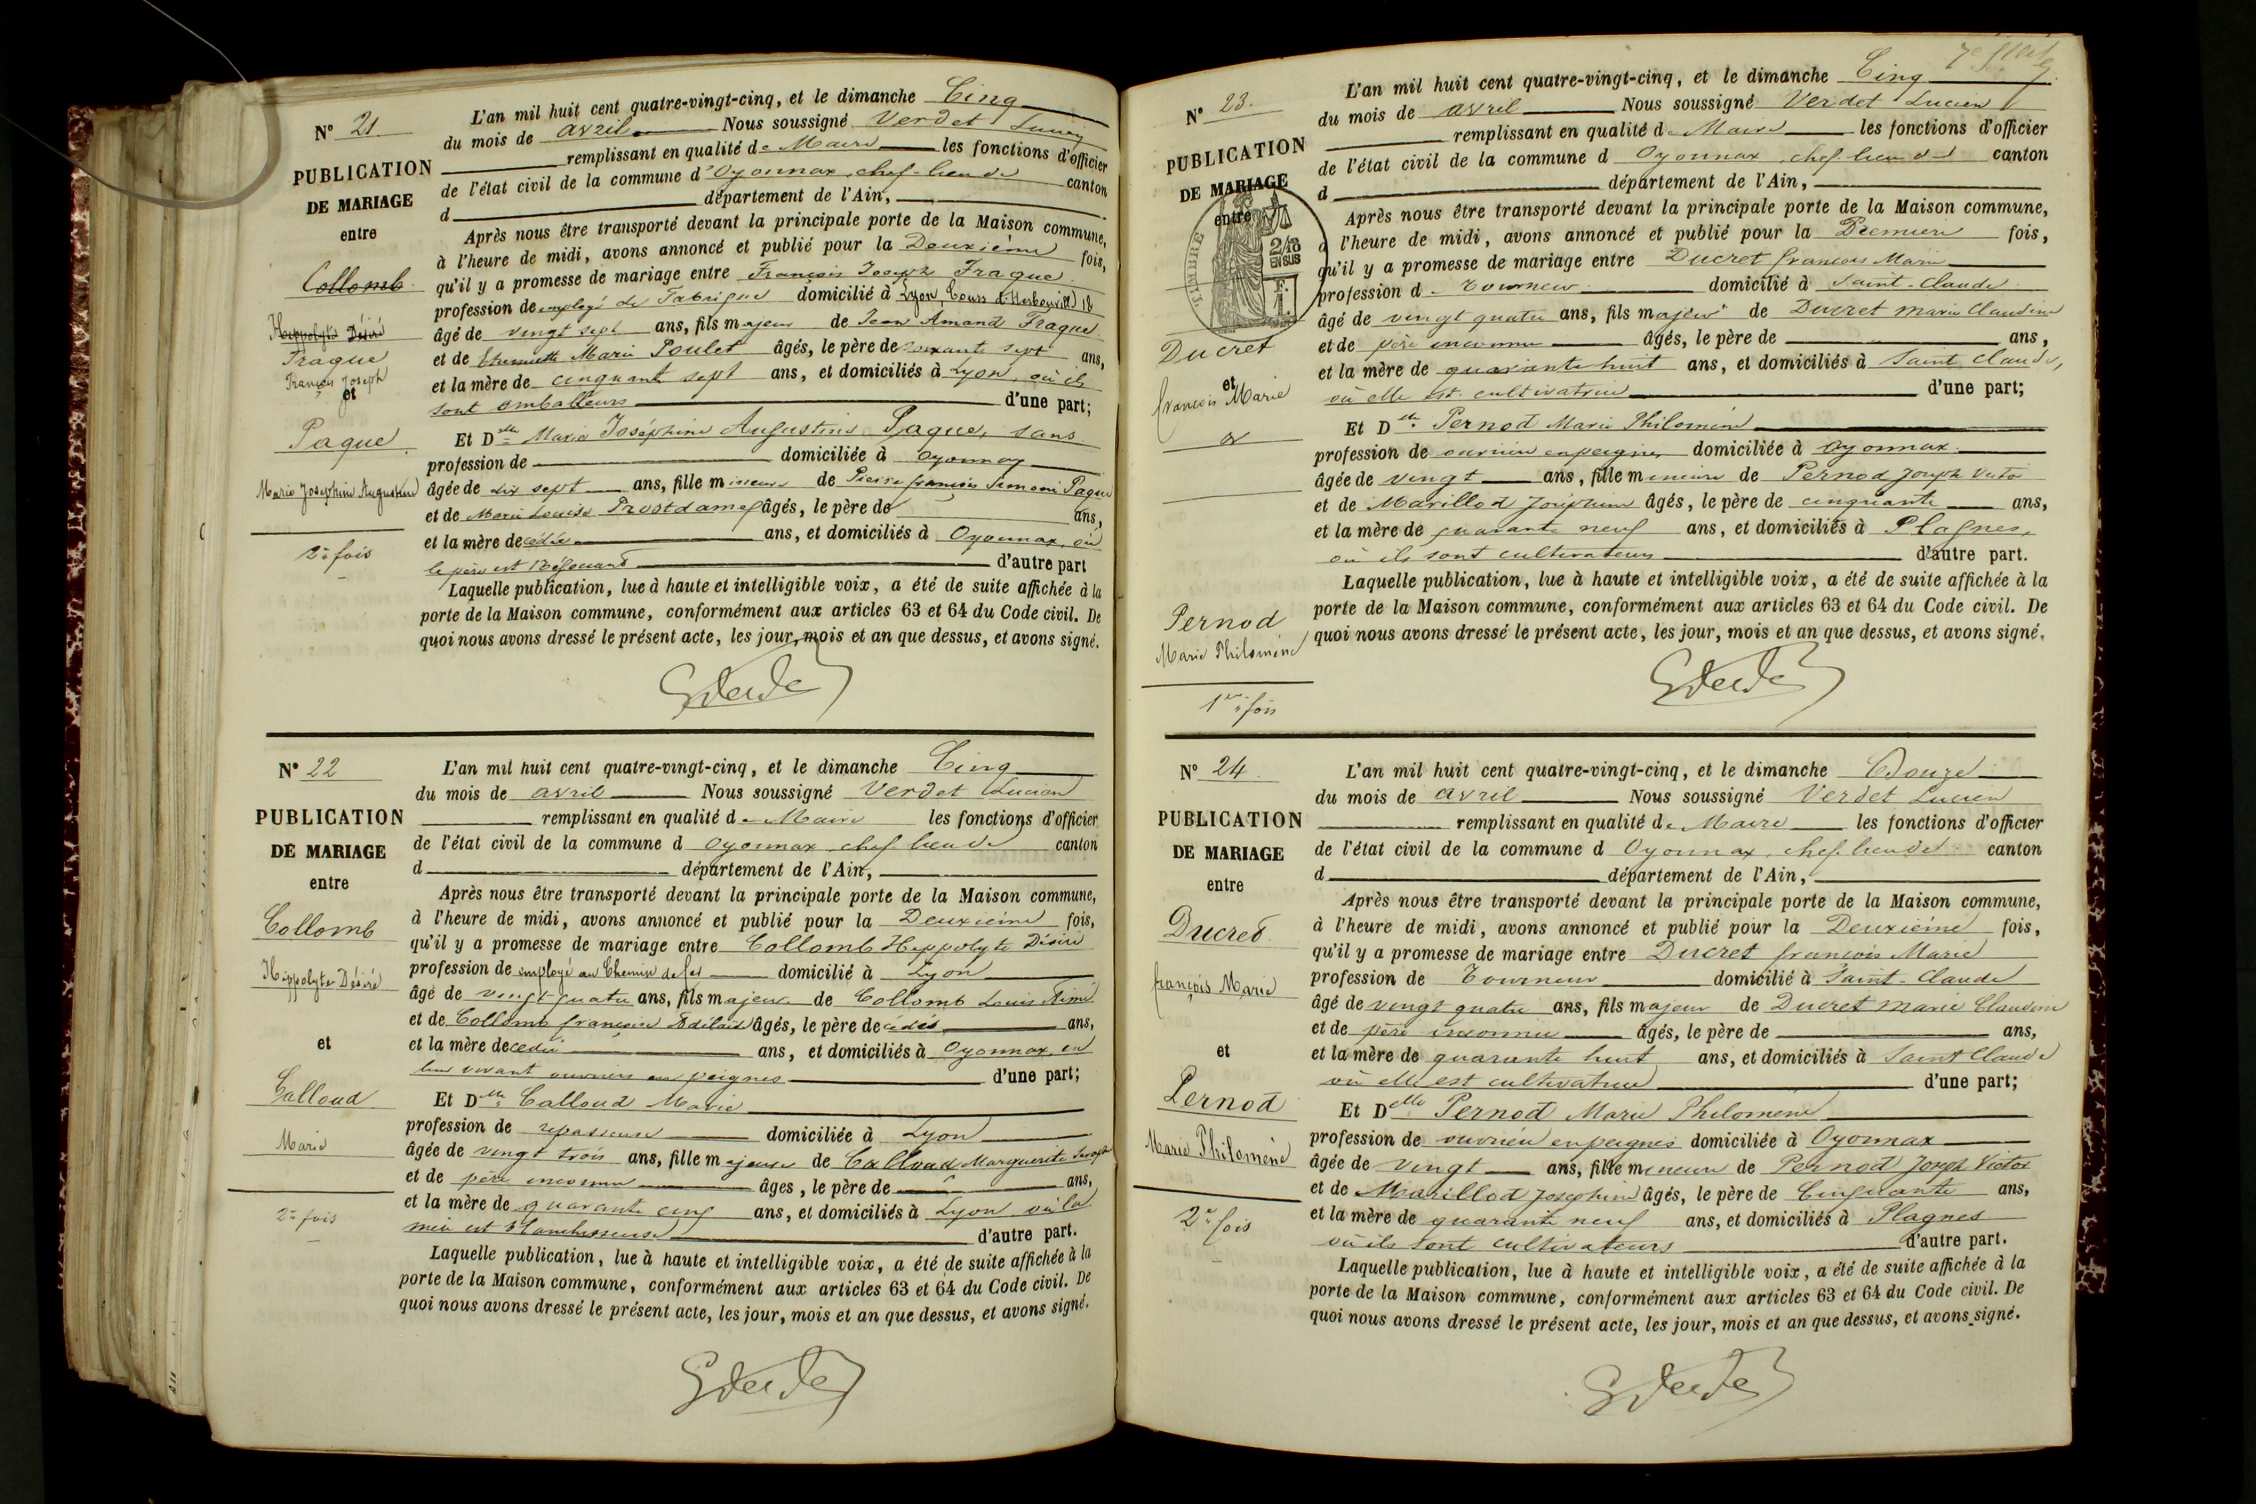 N° 21.
PUBLICATION
DE MARIAGE
entre
Collomb
Hippolyte Désiré
Fraque
François Joseph
et
Paque
Marie Joséphine Augustine
2e fois
L'an mil huit cent quatre-vingt-cinq, et le dimanche Cinq
du mois de avril Nous soussigné Verdet Lucien
remplissant en qualité de Maire les fonctions d'officier
de l'état civil de la commune d'Oyonnax, chef-lieu de canton
d département de l'Ain,
Après nous être transporté devant la principale porte de la Maison commune,
à l'heure de midi, avons annoncé et publié pour la Deuxième fois,
qu'il y a promesse de mariage entre François Joseph Fraque
profession de employé de Fabrique domicilié à Lyon, Cours d'Herbouville 18
âgé de vingt sept ans, fils majeur de Jean Amand Fraque
et de Etiennette Marie Poulet âgés, le père de soixante sept ans,
et la mère de cinquante sept ans, et domiciliés à Lyon, où ils
sont emballeurs d'une part;
Et Delle Marie Joséphine Augustine Paque, sans
profession de domiciliée à Oyonnax
âgée de dix sept ans, fille mineure de Pierre françois Simeon Paque
et de Marie Louise Prostdame âgés, le père de ans,
et la mère décédée ans, et domiciliés à Oyonnax, où
le père est d'autre part
Laquelle publication, lue à haute et intelligible voix, a été de suite affichée à la
porte de la Maison commune, conformément aux articles 63 et 64 du Code civil. De
quoi nous avons dressé le présent acte, les jour, mois et an que dessus, et avons signé.
N° 22
PUBLICATION
DE MARIAGE
entre
Collomb
Hippolyte Désiré
et
Calloud
Marie
2e fois
L'an mil huit cent quatre-vingt-cinq, et le dimanche Cinq
du mois de avril Nous soussigné Verdet Lucien
remplissant en qualité de Maire les fonctions d'officier
de l'état civil de la commune d Oyonnax, chef lieu de canton
d département de l'Ain,
Après nous être transporté devant la principale porte de la Maison commune,
à l'heure de midi, avons annoncé et publié pour la Deuxième fois,
qu'il y a promesse de mariage entre Collomb Hippolyte Désiré
profession de employé au Chemin de fer domicilié à Lyon
âgé de vingt-quatre ans, fils majeur de Collomb Louis Aimé
et de Collomb françoise Adélaïde âgés, le père décédés ans,
et la mère decedée ans, et domiciliés à Oyonnax, en
leur vivant ouvriers en peignes d'une part;
Et Delle Calloud Marie
profession de repasseuse domiciliée à Lyon
âgée de vingt trois ans, fille majeure de Calloud Marguerite
et de père inconnu âges, le père de ans,
et la mère de quarante cinq ans, et domiciliés à Lyon où la
mère est blanchisseuse d'autre part.
Laquelle publication, lue à haute et intelligible voix, a été de suite affichée à la
porte de la Maison commune, conformément aux articles 63 et 64 du Code civil. De
quoi nous avons dressé le présent acte, les jour, mois et an que dessus, et avons signé.
N° 23.
PUBLICATION
DE MARIAGE
entre
TIMBRE
2/10
EN SUS
Ducret
et
françois Marie
Pernod
Marie Philomène
1ère fois
L'an mil huit cent quatre-vingt-cinq, et le dimanche Cinq
du mois de avril Nous soussigné Verdet Lucien
remplissant en qualité de Maire les fonctions d'officier
de l'état civil de la commune d Oyonnax, chef-lieu de canton
d département de l'Ain,
Après nous être transporté devant la principale porte de la Maison commune,
à l'heure de midi, avons annoncé et publié pour la Premiere fois,
qu'il y a promesse de mariage entre Ducret françois Marie
profession de Tourneur domicilié à Saint-Claude
âgé de vingt quatre ans, fils majeur de Ducret Marie Claudine
et de père inconnu âgés, le père de ans,
et la mère de quarante huit ans, et domiciliés à Saint Claude,
où elle est cultivatrice d'une part;
Et Delle Pernod Marie Philomène
profession de ouvrière en peignes domiciliée à Oyonnax
âgée de vingt ans, fille mineure de Pernod Joseph Victor
et de Marillod Joséphine âgés, le père de cinquante ans,
et la mère de quarante neuf ans, et domiciliés à Plagnes,
où ils sont cultivateurs d'autre part.
Laquelle publication, lue à haute et intelligible voix, a été de suite affichée à la
porte de la Maison commune, conformément aux articles 63 et 64 du Code civil. De
quoi nous avons dressé le présent acte, les jour, mois et an que dessus, et avons signé.
N° 24.
PUBLICATION
DE MARIAGE
entre
Ducret
françois Marie
et
Pernod
Marie Philomène
2e fois
L'an mil huit cent quatre-vingt-cinq, et le dimanche Douze
du mois de avril Nous soussigné Verdet Lucien
remplissant en qualité de Maire les fonctions d'officier
de l'état civil de la commune d Oyonnax, chef-lieu de canton
d département de l'Ain,
Après nous être transporté devant la principale porte de la Maison commune,
à l'heure de midi, avons annoncé et publié pour la Deuxième fois,
qu'il y a promesse de mariage entre Ducret françois Marie
profession de Tourneur domicilié à Saint-Claude
âgé de vingt quatre ans, fils majeur de Ducret Marie Claudine
et de père inconnu âgés, le père de ans,
et la mère de quarante huit ans, et domiciliés à Saint Claude
où elle est cultivatrice d'une part;
Et Delle Pernod Marie Philomène
profession de ouvrière en peignes domiciliée à Oyonnax
âgée de vingt ans, fille mineure de Pernod Joseph Victor
et de Marillod Joséphine âgés, le père de Cinquante ans,
et la mère de quarante neuf ans, et domiciliés à Plagnes
où ils sont cultivateurs d'autre part.
Laquelle publication, lue à haute et intelligible voix, a été de suite affichée à la
porte de la Maison commune, conformément aux articles 63 et 64 du Code civil. De
quoi nous avons dressé le présent acte, les jour, mois et an que dessus, et avons signé.